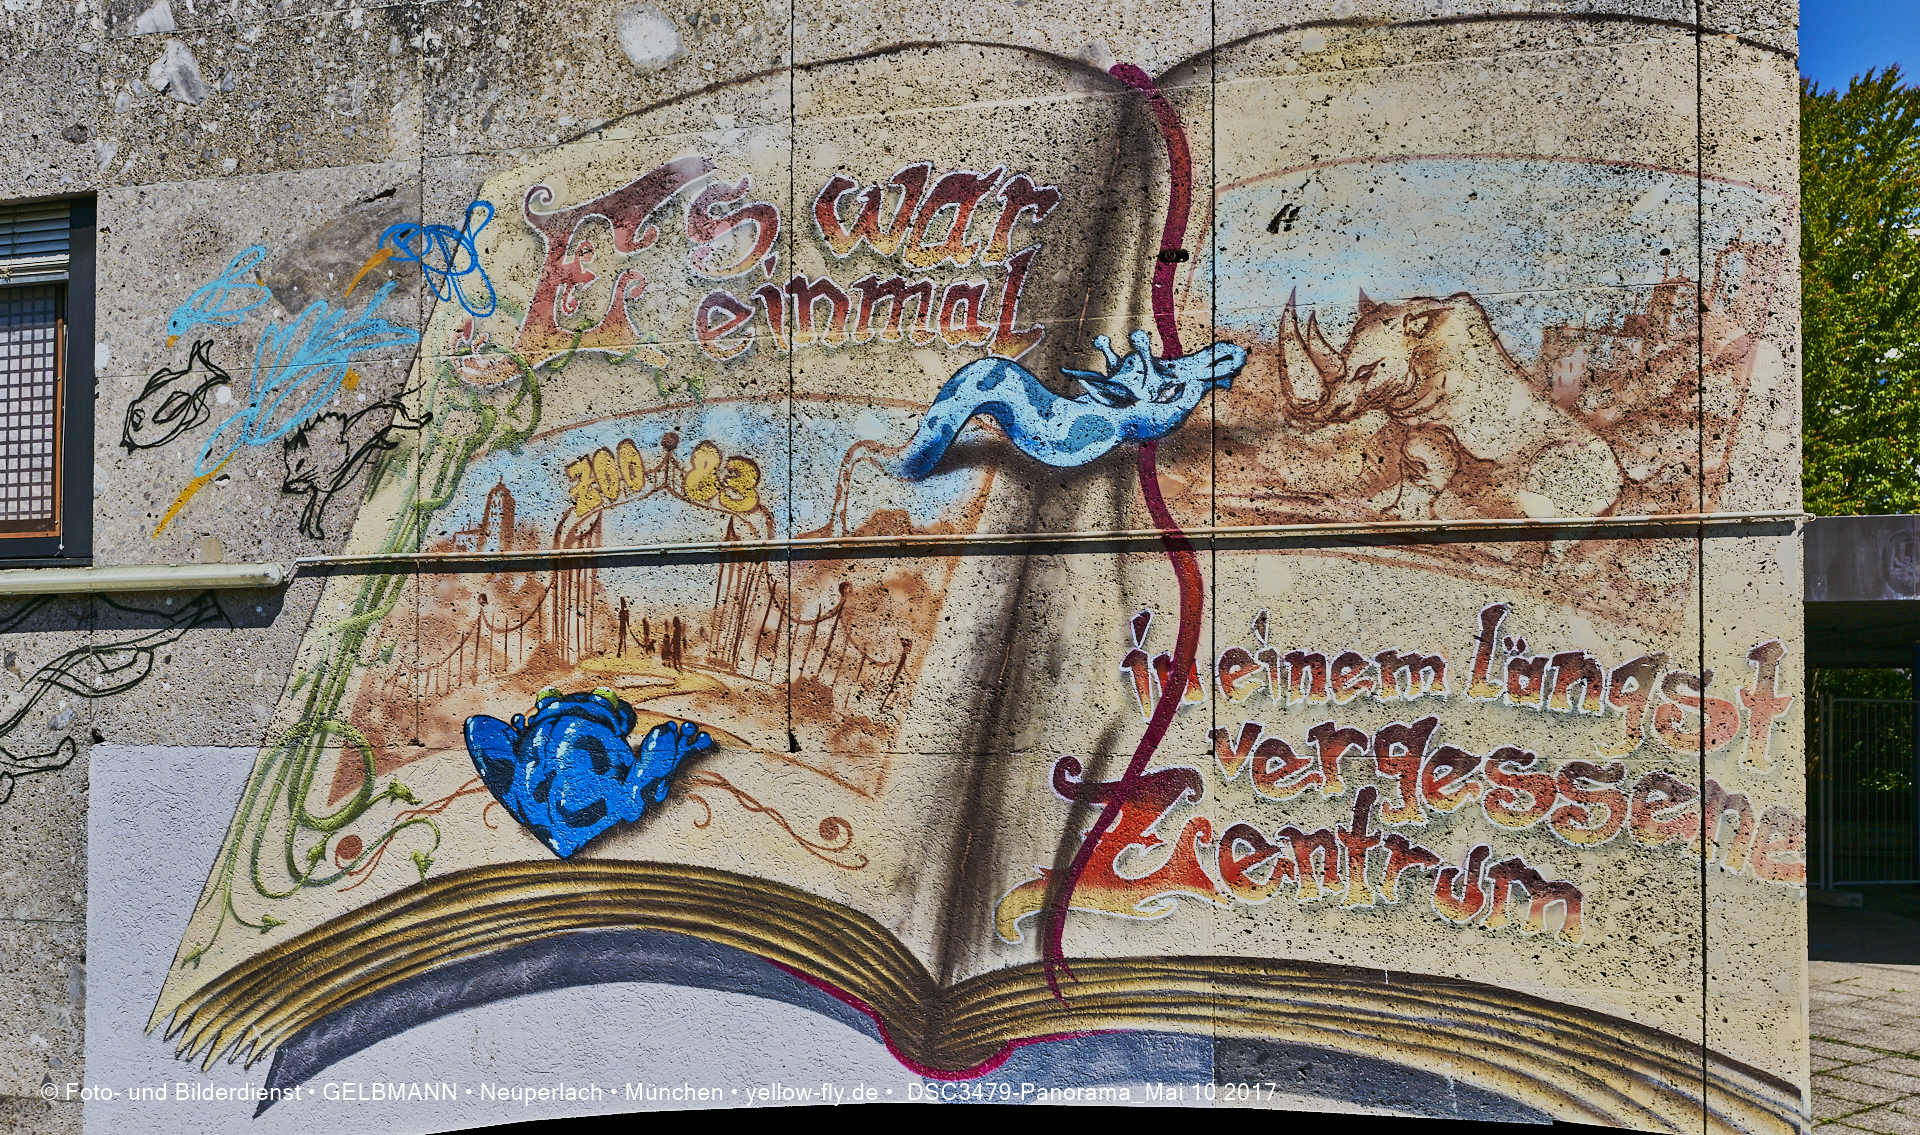 Es war
einmal
ZOO 83
in einem längst
vergessene
Zentrum
© Foto- und Bilderdienst • GELBMANN • Neuperlach • München • yellow-fly.de • DSC3479-Panorama_Mai 10 2017